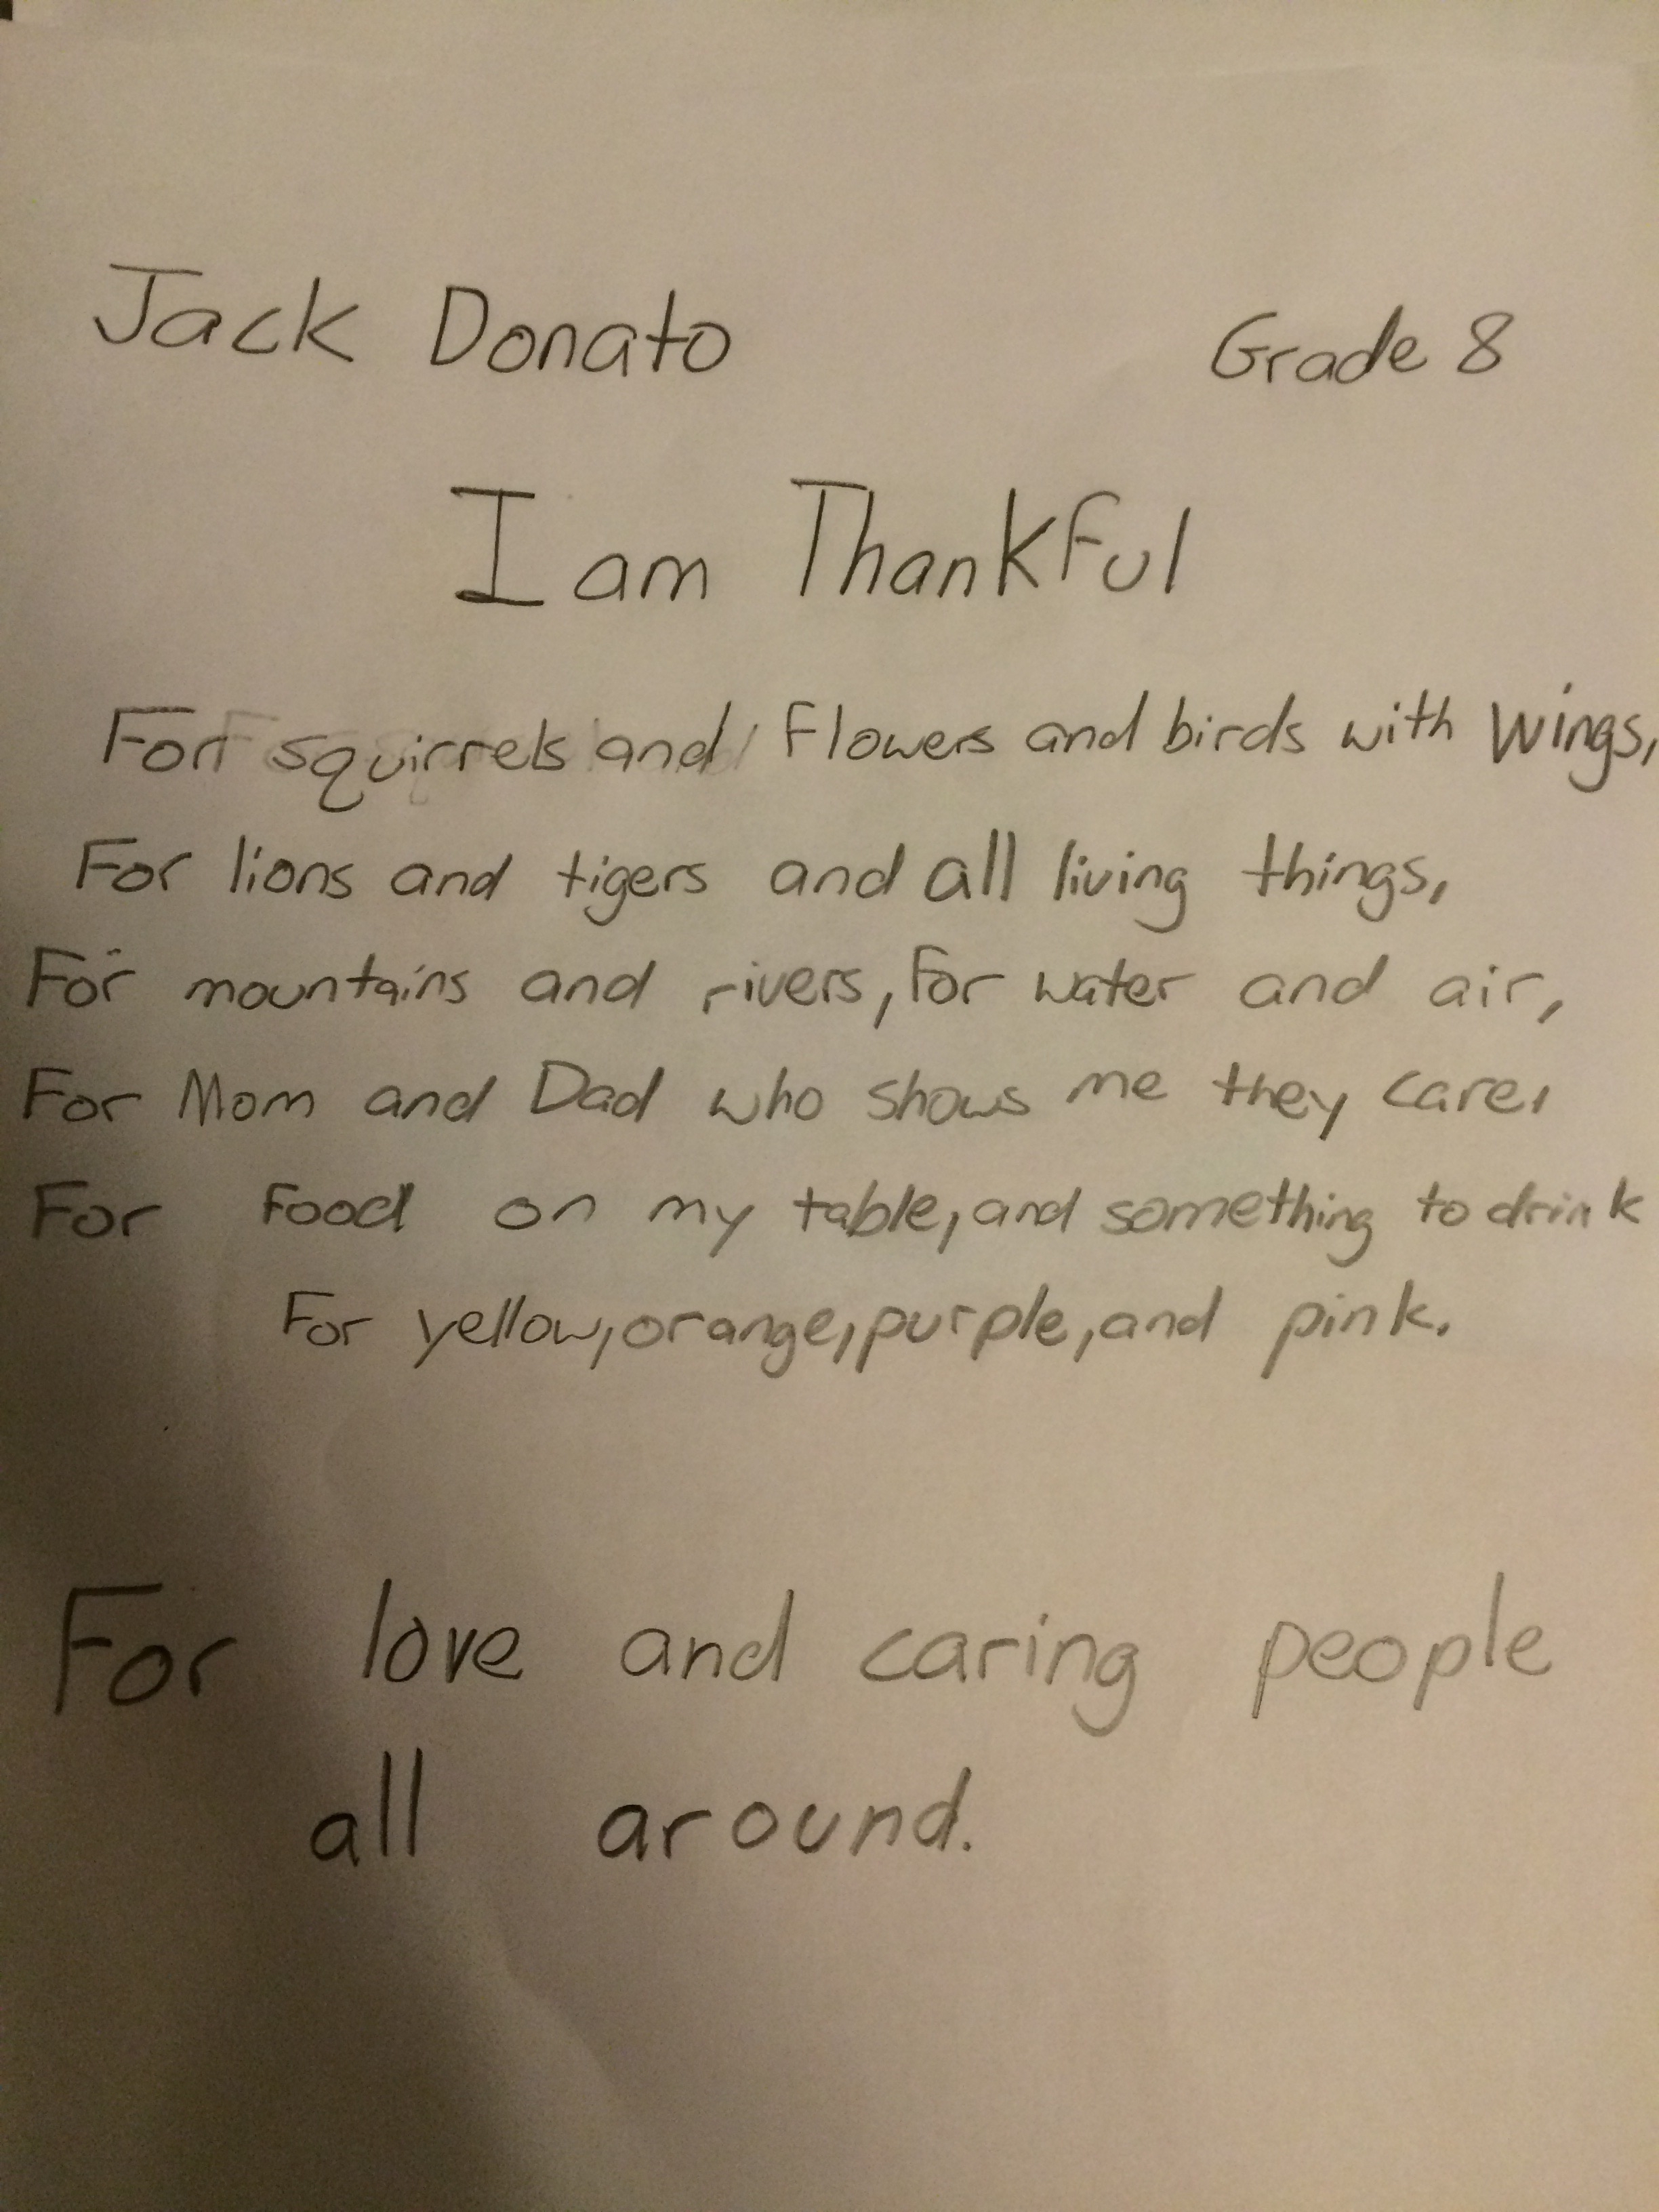 Jack Donato Grade 8
I am Thankful
For squirrels and flowers and birds with wings,
For lions and tigers and all living things,
For mountains and rivers, for water and air,
For Mom and Dad who shows me they care,
For food on my table, and something to drink
For yellow, orange, purple, and pink.
For love and caring people
all around.